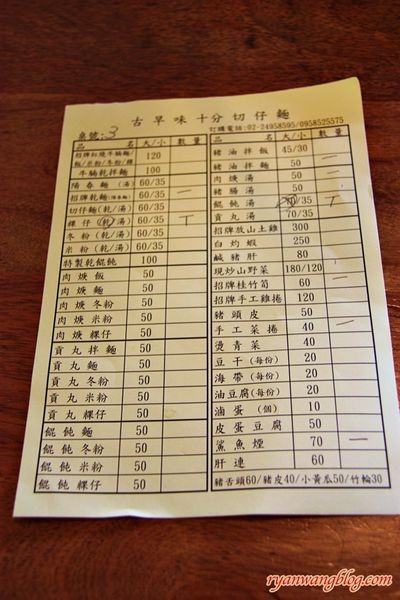 古早味十分切仔麵
桌號:3
訂購電話:02-24958595/0958525575
品名 大/小 數量
招牌紅燒牛腩麵/飯/米粉/冬粉/粿 120
牛腩乾拌麵 100
陽春麵(湯) 60/35
招牌乾麵 60/35 一
切仔麵(乾/湯) 60/35
粿仔(乾/湯) 60/35 T
冬粉(乾/湯) 60/35
米粉(乾/湯) 60/35
特製乾餛飩 100
肉焿飯 50
肉焿麵 50
肉焿冬粉 50
肉焿米粉 50
肉焿粿仔 50
貢丸拌麵 50
貢丸麵 50
貢丸冬粉 50
貢丸米粉 50
貢丸粿仔 50
餛飩麵 50
餛飩冬粉 50
餛飩米粉 50
餛飩粿仔 50
品名 大/小 數量
豬油拌飯 45/30
豬油拌麵 30
肉焿湯 35 一
豬腸湯 35
餛飩湯 70/35 T
貢丸湯 70/35
招牌放山土雞 300
白灼蝦 250
鹹豬肝 80
現炒山野菜 180/120
招牌桂竹筍 60 一
招牌手工雞捲 120
豬頭皮 50
手工菜捲 40 一
燙青菜 40
豆干(每份) 20
海帶(每份) 20
油豆腐(每份) 20
滷蛋(個) 10
皮蛋豆腐 50
鯊魚煙 70 一
肝連 60
豬舌頭60/豬皮40/小黃瓜50/竹輪30
ryanwangblog.com